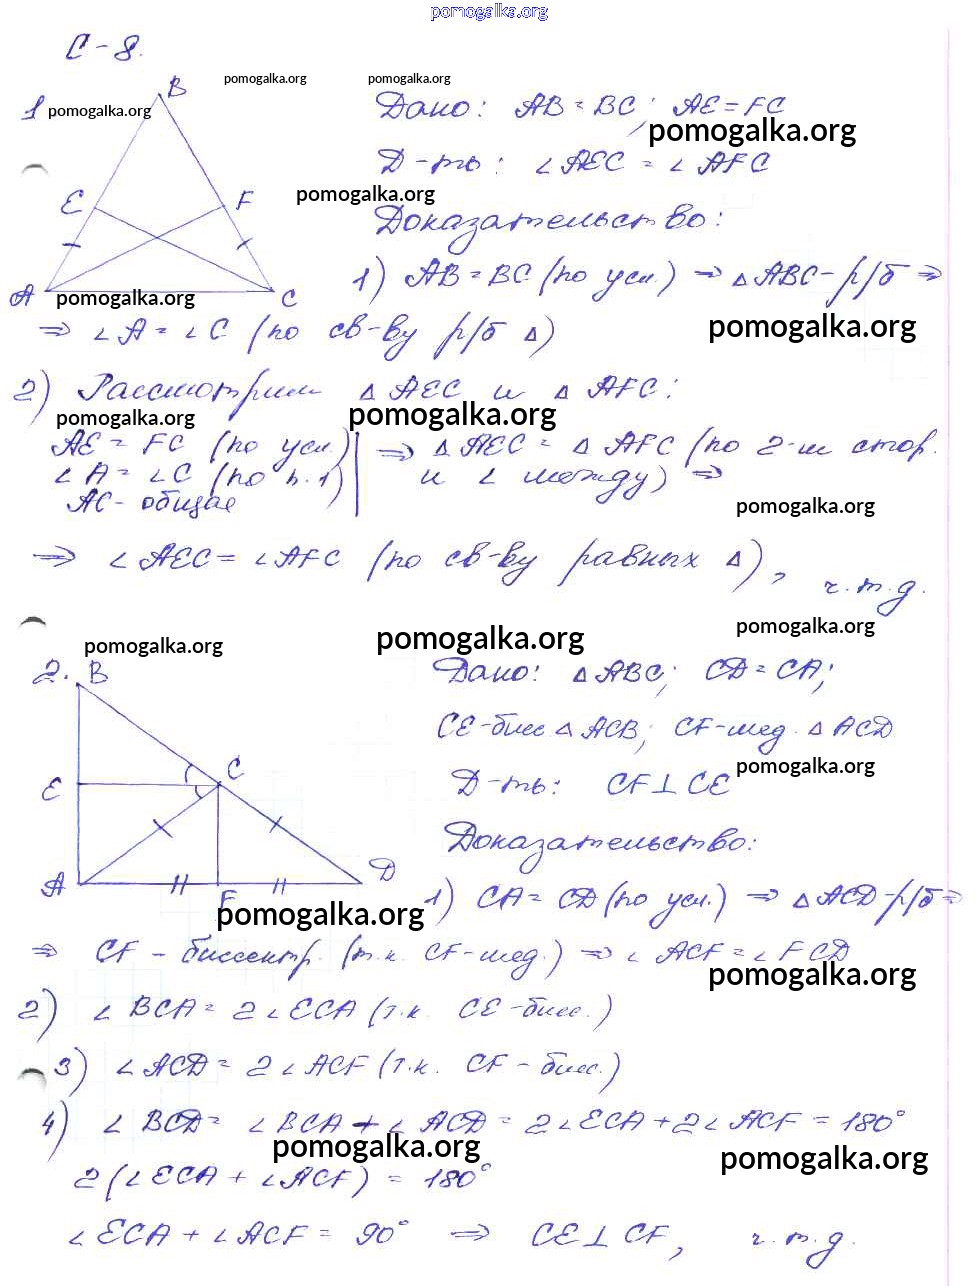 pomogalka.org
С-8.
pomogalka.org pomogalka.org
1 pomogalka.org
B
E
F
A
C
Дано: AB = BC; AE = FC
pomogalka.org
Д-ть: ∠AEC = ∠AFC
pomogalka.org
Доказательство:
1) AB = BC (по усл.) ⇒ △ABC - р/б ⇒
pomogalka.org
pomogalka.org
⇒ ∠A = ∠C (по св-ву р/б △)
2) Рассмотрим △AEC и △AFC:
pomogalka.org
pomogalka.org
AE = FC (по усл.) | ⇒ △AEC = △AFC (по 2-м стор.
∠A = ∠C (по п.1) | и ∠ между) ⇒
AC - общая
pomogalka.org
⇒ ∠AEC = ∠AFC (по св-ву равных △), ч.т.д.
pomogalka.org
pomogalka.org
pomogalka.org
2.
B
E
C
A
F
D
Дано: △ABC; CD = CA;
CE - бисс. △ACB; CF - мед. △ACD
pomogalka.org
Д-ть: CF ⊥ CE
Доказательство:
1) CA = CD (по усл.) ⇒ △ACD - р/б ⇒
pomogalka.org
⇒ CF - биссектр. (т.к. CF - мед.) ⇒ ∠ACF = ∠FCD
pomogalka.org
2) ∠BCA = 2∠ECA (т.к. CE - бисс.)
3) ∠ACD = 2∠ACF (т.к. CF - бисс.)
4) ∠BCD = ∠BCA + ∠ACD = 2∠ECA + 2∠ACF = 180°
pomogalka.org
pomogalka.org
2(∠ECA + ∠ACF) = 180°
∠ECA + ∠ACF = 90° ⇒ CE ⊥ CF, ч.т.д.